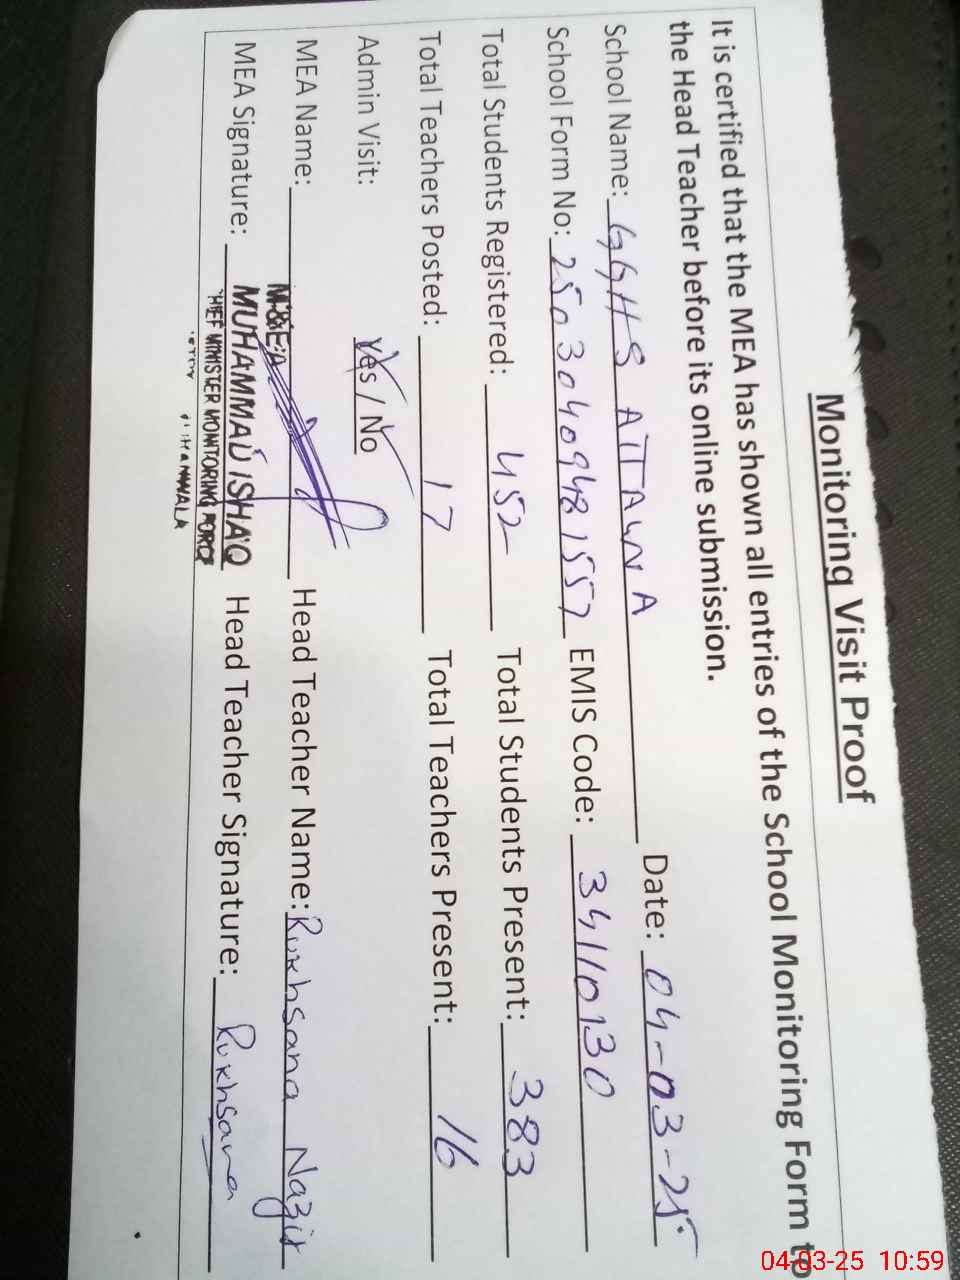 Monitoring Visit Proof
It is certified that the MEA has shown all entries of the School Monitoring Form to
the Head Teacher before its online submission.
School Name: GGHS ATTAWA Date: 04-03-25
School Form No: 25030409481557 EMIS Code: 34110130
Total Students Registered: 452 Total Students Present: 383
Total Teachers Posted: 17 Total Teachers Present: 16
Admin Visit: Yes / No
MEA Name: Head Teacher Name: Rukhsana Nazir
M&E.A
MEA Signature: MUHAMMAD ISHAQ Head Teacher Signature: Rukhsana
CHIEF MINISTER MONITORING FORCE
04-03-25 10:59